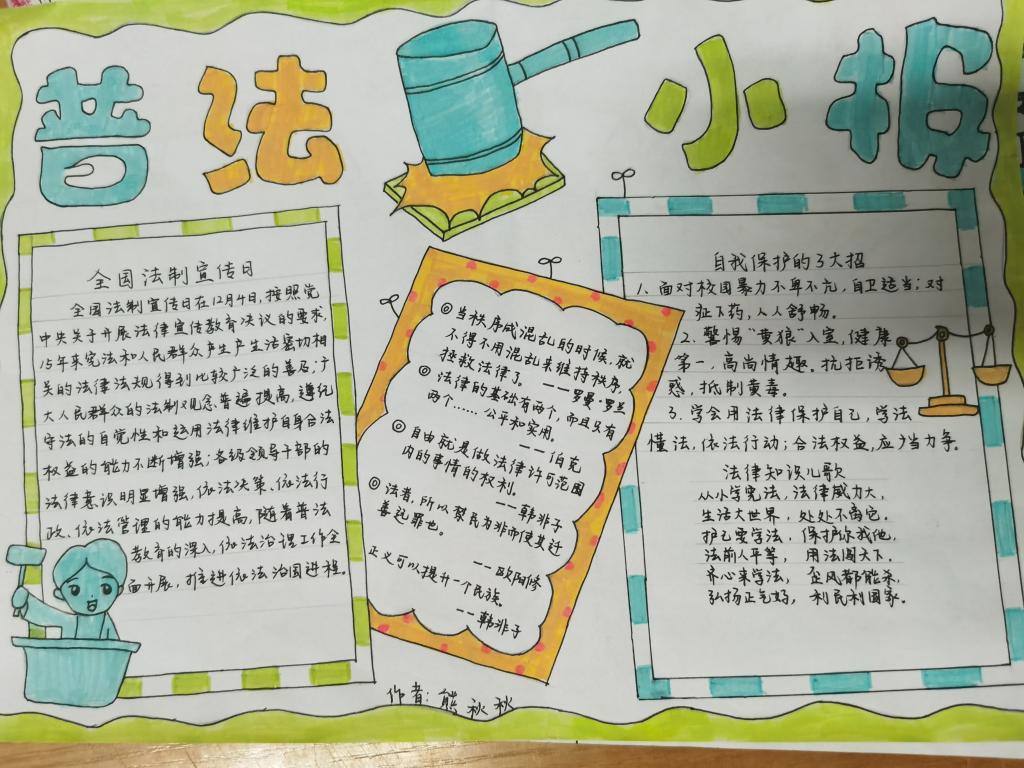 普法小报
全国法制宣传日
全国法制宣传日在12月4日,按照党
中央关于开展法律宣传教育决议的要求,
15年来宪法和人民群众产生产生活密切相
关的法律法规得到比较广泛的普及;广
大人民群众的法制观念普遍提高,遵纪
守法的自觉性和运用法律维护自身合法
权益的能力不断增强;各级领导干部的
法律意识明显增强,依法决策、依法行
政、依法管理的能力提高,随着普法
教育的深入,依法治理工作全
面开展,推进依法治国进程。
◎当秩序成混乱的时候,就
不得不用混乱来维持秩序,
拯救法律了。——罗曼·罗兰
◎法律的基础有两个,而且只有
两个……公平和实用。
——伯克
◎自由就是做法律许可范围
内的事情的权利。
——韩非子
◎法者,所以禁民为非而使其迁
善远罪也。
——欧阳修
正义可以提升一个民族。
——韩非子
自我保护的3大招
1.面对校园暴力不卑不亢,自卫适当;对
症下药,人人舒畅。
2.警惕"黄狼"入室,健康
第一,高尚情趣。抗拒诱
惑,抵制黄毒。
3.学会用法律保护自己,学法
懂法,依法行动;合法权益,应当力争。
法律知识儿歌
从小学宪法,法律威力大,
生活大世界,处处不离它。
护己要学法,保护你我他,
法前人平等,用法闯天下。
齐心来学法,歪风都能杀,
弘扬正气好,利民利国家。
作者:熊秋秋